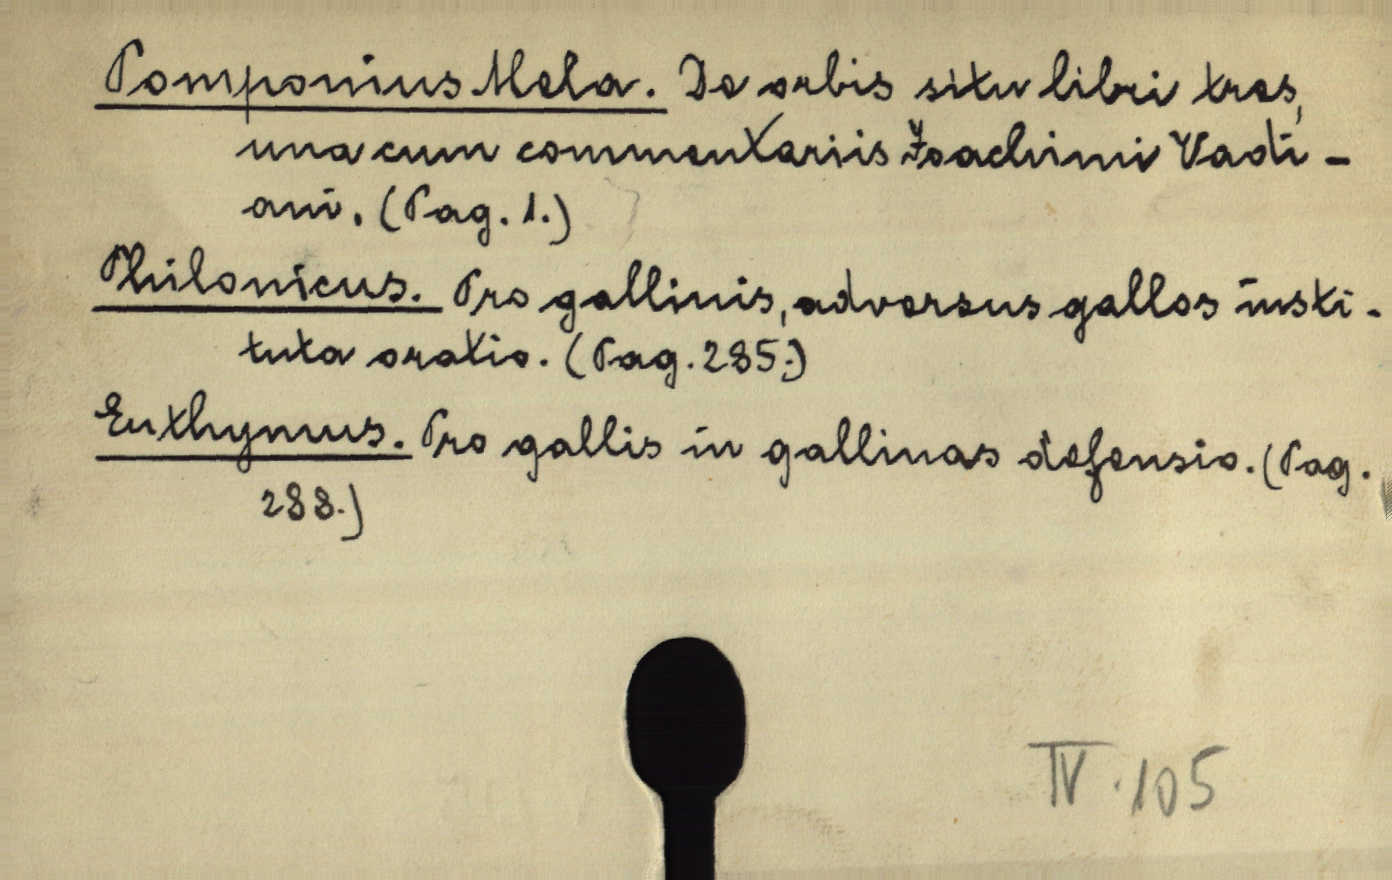 Pomponius Mela. De orbis situ libri tres,
una cum commentariis Joachimi Vadi-
ani. (Pag. 1.)
Philonicus. Pro gallinis, adversus gallos insti-
tuta oratio. (Pag. 285.)
Euthymus. Pro gallis in gallinas defensio. (Pag.
288.)
IV. 105